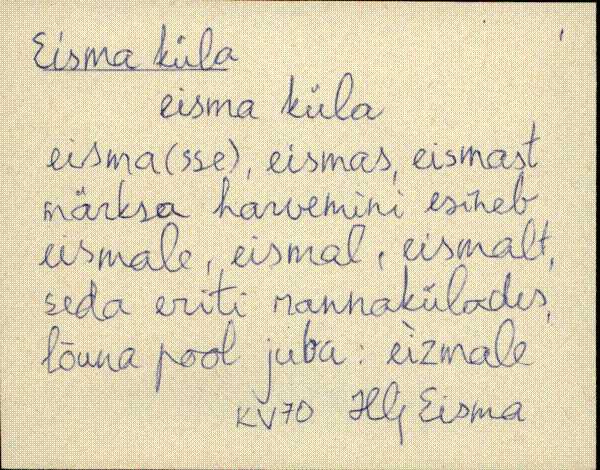 Eisma küla
eisma küla
eisma(sse), eismas, eismast
märksa harvemini esineb
eismale, eismal, eismalt,
seda eriti rannakülades,
lõuna pool juba: èizmale
KV70 HlJ Eisma